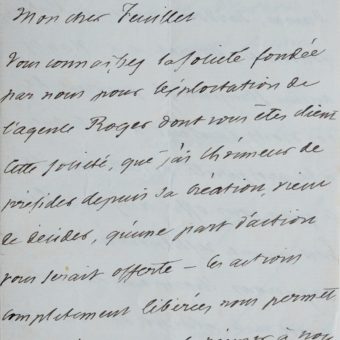 Mon cher Feuillet
Vous connaissez la société fondée
par nous pour l'exploitation de
l'agence Roger dont vous êtes client
Cette société, que j'ai l'honneur de
présider depuis sa création, vient
de décider, qu'une part d'action
vous serait offerte – les actions
complètement libérées nous permet
à nos